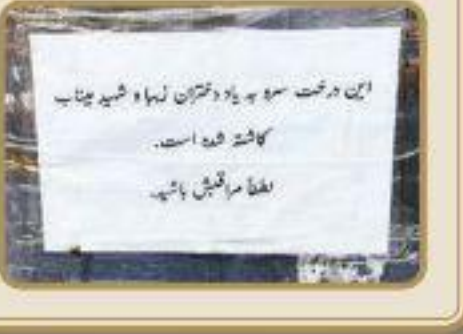 این درخت سرو به یاد دختران زیبا و شهید میناب
کاشته شده است.
لطفاً مراقبش باشید.